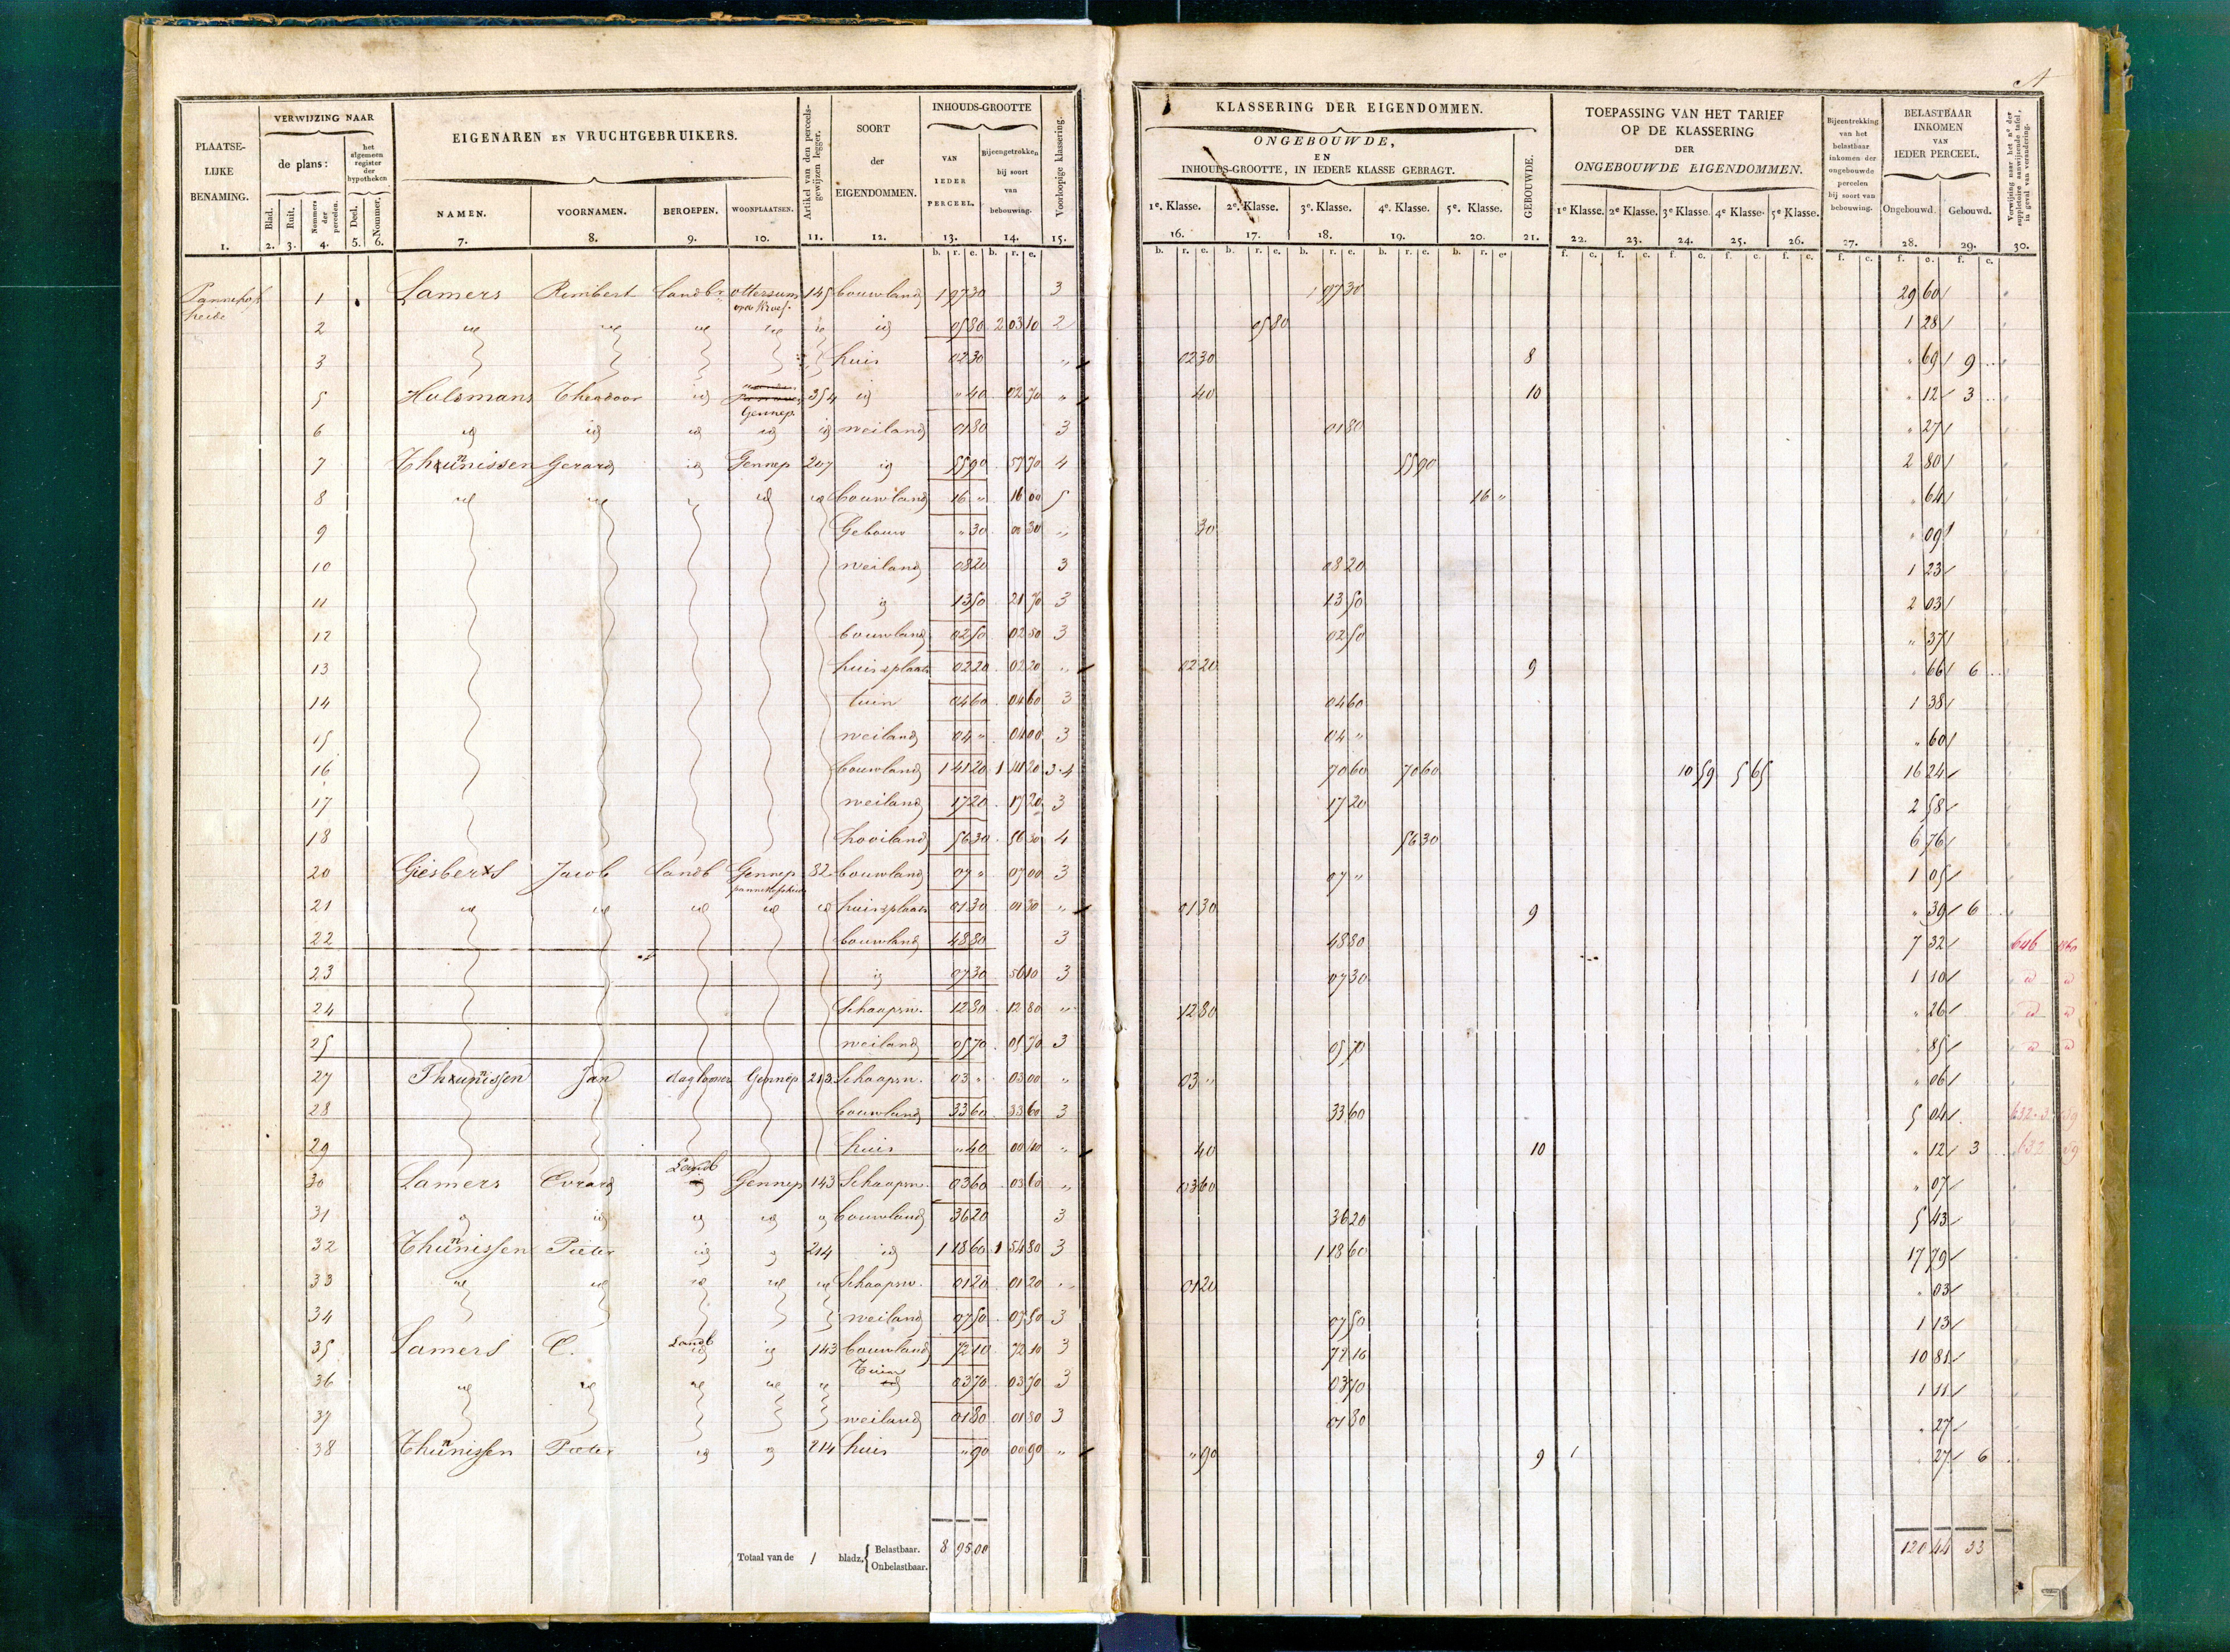 A
PLAATSE-LIJKE BENAMING. 1.
VERWIJZING NAAR
de plans:
Blad. 2. Ruit. 3. Nommers der perceelen. 4.
het algemeen register der hypotheken
Deel. 5. Nommer. 6.
EIGENAREN EN VRUCHTGEBRUIKERS.
NAMEN. 7. VOORNAMEN. 8. BEROEPEN. 9. WOONPLAATSEN. 10.
Artikel van den perceels-gewijzen legger. 11.
SOORT der EIGENDOMMEN. 12.
INHOUDS-GROOTTE
VAN IEDER PERCEEL. 13. Bijeengetrokken bij soort van bebouwing. 14.
Voorloopige klassering. 15.
KLASSERING DER EIGENDOMMEN.
ONGEBOUWDE, EN INHOUDS-GROOTTE, IN IEDERE KLASSE GEBRAGT.
1e. Klasse. 16. 2e. Klasse. 17. 3e. Klasse. 18. 4e. Klasse. 19. 5e. Klasse. 20. GEBOUWDE. 21.
TOEPASSING VAN HET TARIEF OP DE KLASSERING DER ONGEBOUWDE EIGENDOMMEN.
1e Klasse. 22. 2e Klasse. 23. 3e Klasse. 24. 4e Klasse. 25. 5e Klasse. 26.
Bijeentrekking van het belastbaar inkomen der ongebouwde perceelen bij soort van bebouwing. 27.
BELASTBAAR INKOMEN VAN IEDER PERCEEL.
Ongebouwd. 28. Gebouwd. 29.
Verwijzing naar het no der suppletoire aanwijzende tafel, in geval van verandering. 30.
Pannekop heide 1 Lamers Rimbert Landbr ottersum 145 bouwland 1 97 30 3 1 97 30 29 60
2 id id id id id id 05 80 2 03 10 2 05 80 1 28
3 huis 02 30 " 02 30 8 " 69 9
5 Hulsmans Theodoor id Gennep 354 id " 40 02 70 " 40 10 " 12 3
6 id id id id id weiland 01 80 3 01 80 " 27
7 Theunissen Gerard id Gennep 207 id 55 90 57 70 4 55 90 2 80
8 id id id id id bouwland 16 " 16 00 5 16 " " 64
9 Gebouw " 30 00 30 " 30 " 09
10 weiland 08 20 3 08 20 1 23
11 id 13 50 21 70 3 13 50 2 03
12 bouwland 02 50 02 50 3 02 50 " 37
13 huisplaats 02 20 02 20 " 02 20 9 " 66 6
14 tuin 04 60 04 60 3 04 60 1 38
15 weiland 04 " 04 00 3 04 " " 60
16 bouwland 1 41 20 1 41 20 3-4 70 60 70 60 10 59 5 65 16 24
17 weiland 17 20 17 20 3 17 20 2 58
18 hooiland 56 30 56 30 4 56 30 6 76
20 Giesberts Jacob Landb Gennep 82 bouwland 07 " 07 00 3 07 " 1 05
21 id id id id id huisplaats 01 30 01 30 " 01 30 9 " 39 6
22 bouwland 48 80 3 48 80 7 32 646 1860
23 id 07 30 56 10 3 07 30 1 10 id id
24 Schaapsw. 12 80 12 80 " 12 80 " 26 id id
25 weiland 05 70 05 70 3 05 70 " 85 id id
27 Theunissen Jan daglooner Gennep 213 Schaapsw. 03 " 03 00 " 03 " " 06
28 bouwland 33 60 33 60 3 33 60 5 04
29 huis " 40 00 40 " 40 10 " 12 3
30 Lamers Evrard Landb Gennep 143 Schaapsw. 03 60 03 60 " 03 60 " 07
31 id id id id id bouwland 36 20 3 36 20 5 43
32 Theunissen Pieter id id 214 id 1 18 60 1 54 80 3 1 18 60 17 79
33 id id id id id Schaapsw. 01 20 01 20 " 01 20 " 03
34 weiland 07 50 07 50 3 07 50 1 13
35 Lamers E. Landb id 143 bouwland 72 10 72 10 3 72 10 10 81
36 id id id id id Tuin 03 70 03 70 3 03 70 1 11
37 weiland 01 80 01 80 3 01 80 " 27
38 Theunissen Pieter id id 214 huis " 90 00 90 " " 90 9 " 27 6
Totaal van de 1 bladz. { Belastbaar. Onbelastbaar. 8 95 00 120 44 33